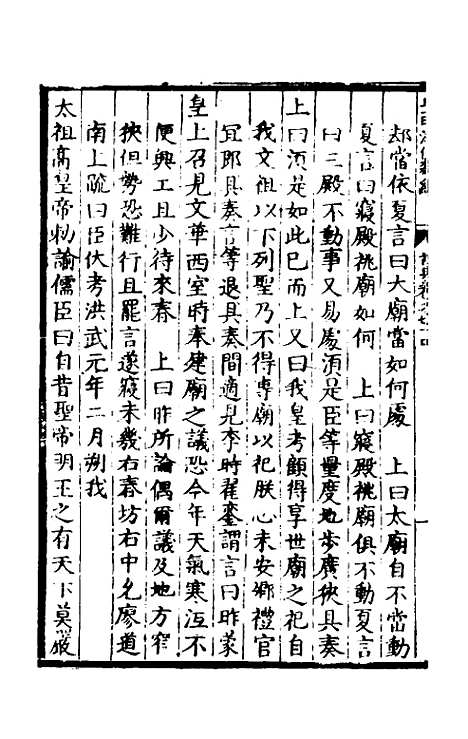 却當依夏言曰大廟當如何處　上曰太廟自不當動
夏言曰寢殿祧廟如何　上曰寢殿祧廟俱不動夏言
曰三殿不動事又易處須是臣等量度地步廣狹具奏
上曰須是如此已而上又曰我皇考顧得享世廟之祀自
我文祖以下列聖乃不得專廟以祀朕心未安鄉禮官
冝即具奏言等退具奏間適見李時翟鑾謂言曰昨蒙
皇上召見文華西室時奉建廟之議恐今年天氣寒沍不
便興工且少待來春　上曰昨所論偶爾議及地方窄
狹但勢恐難行且罷言遂寢未幾右春坊右中允廖道
南上疏曰臣伏考洪武元年二月朔我
太祖高皇帝勑諭儒臣曰自昔聖帝明王之有天下莫嚴